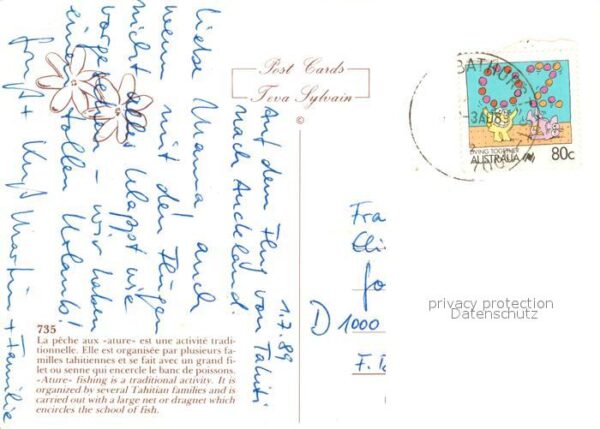 Post Cards
Teva Sylvain
©
BATHURST
3AU89
LIVING TOGETHER
AUSTRALIA
80c
1.7.89
Auf dem Flug von Tahiti
nach Auckland.
Liebe Mama, auch
wenn mit den Flügen
nicht alles klappt wie
vorgesehen – wir haben
einen tollen Urlaub!
Gruß + Kuß Martin + Familie
Fra
D 1000
F.
privacy protection
Datenschutz
735
La pêche aux «ature» est une activité tradi-
tionnelle. Elle est organisée par plusieurs fa-
milles tahitiennes et se fait avec un grand fi-
let ou senne qui encercle le banc de poissons.
«Ature» fishing is a traditional activity. It is
organized by several Tahitian families and is
carried out with a large net or dragnet which
encircles the school of fish.